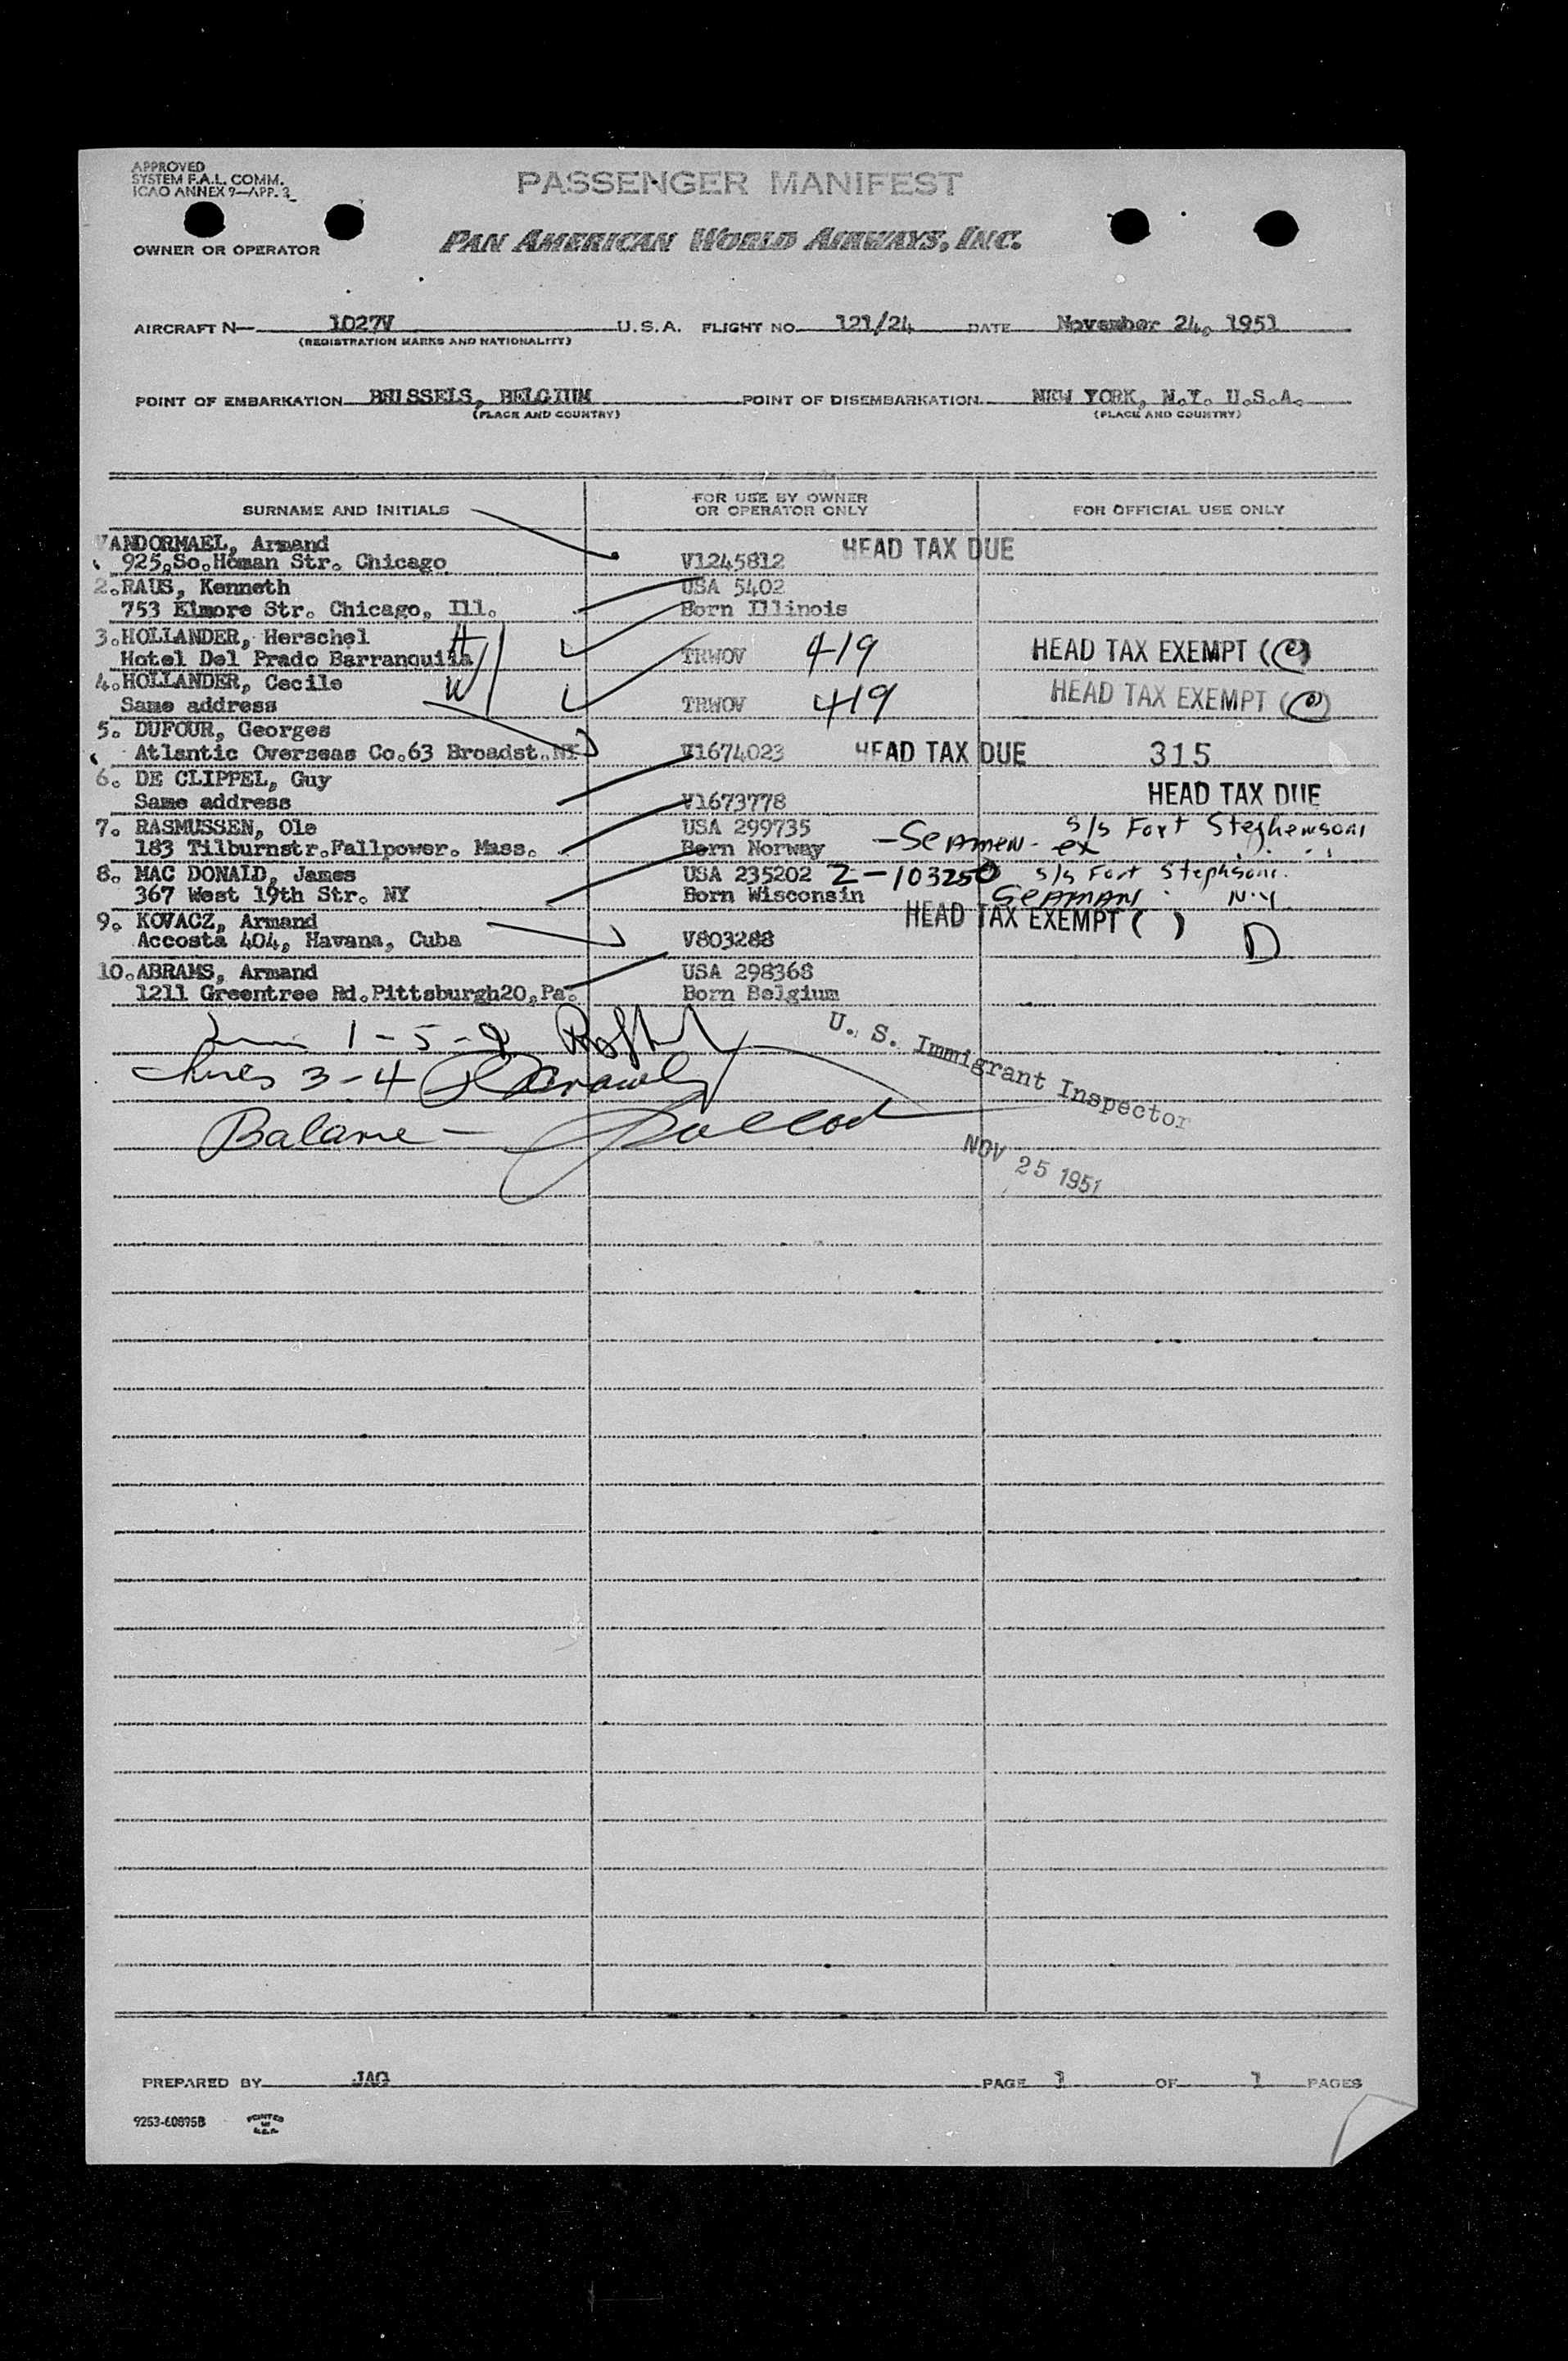 APPROVED
SYSTEM F.A.L. COMM.
ICAO ANNEX 9—APP. 3
PASSENGER MANIFEST
OWNER OR OPERATOR PAN AMERICAN WORLD AIRWAYS, INC.
AIRCRAFT N— 1027V U.S.A. FLIGHT NO. 121/24 DATE November 24, 1951
(REGISTRATION MARKS AND NATIONALITY)
POINT OF EMBARKATION BRUSSELS, BELGIUM POINT OF DISEMBARKATION NEW YORK, N.Y. U.S.A.
(PLACE AND COUNTRY) (PLACE AND COUNTRY)
SURNAME AND INITIALS FOR USE BY OWNER OR OPERATOR ONLY FOR OFFICIAL USE ONLY
VANDORMAEL, Armand HEAD TAX DUE
925,So.Homan Str. Chicago V1245812
2.RAUS, Kenneth USA 5402
753 Elmore Str. Chicago, Ill. Born Illinois
3.HOLLANDER, Herschel H
Hotel Del Prado Barranquilla TRWOV 419 HEAD TAX EXEMPT (e)
4.HOLLANDER, Cecile W
Same address TRWOV 419 HEAD TAX EXEMPT (e)
5. DUFOUR, Georges
Atlantic Overseas Co.63 Broadst.NY V1674023 HEAD TAX DUE 315
6. DE CLIPPEL, Guy HEAD TAX DUE
Same address V1673778
7. RASMUSSEN, Ole USA 299735 s/s Fort Stephenson
183 Tilburnstr.Fallpower. Mass. Born Norway —Seamen- ex
8. MAC DONALD, James USA 235202 Z-103250 s/s Fort Stephson
367 West 19th Str. NY Born Wisconsin SEAMAN N.Y
9. KOVACZ, Armand HEAD TAX EXEMPT ( )
Accosta 404, Havana, Cuba V803288 D
10.ABRAMS, Armand USA 298368
1211 Greentree Rd.Pittsburgh20,Pa. Born Belgium
1-5-9
U. S. Immigrant Inspector
lines 3-4
Balance -
NOV 25 1951
PREPARED BY JAG PAGE 1 OF 1 PAGES
9253-60895B PRINTED IN U.S.A.